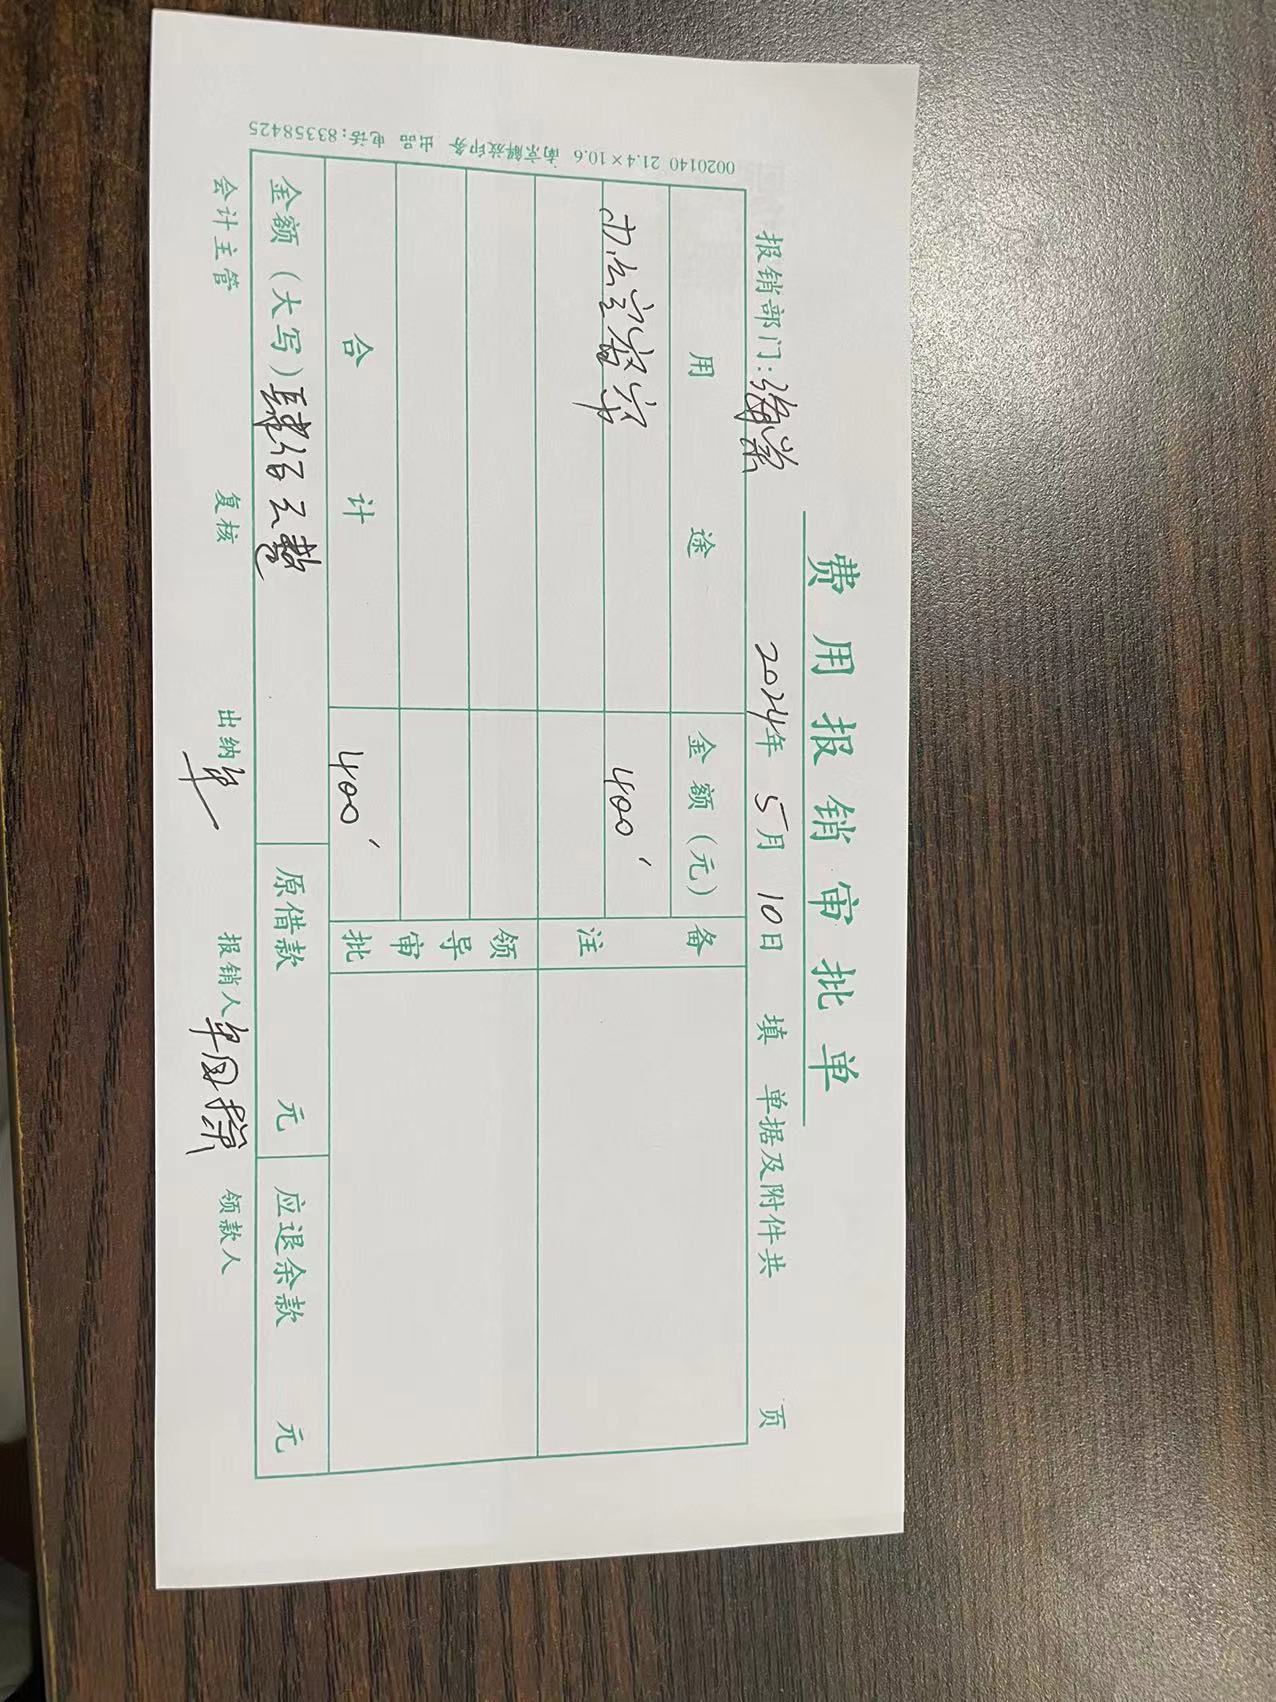 费用报销审批单
报销部门: 2024年 5月 10日 填 单据及附件共 页
用途 金额(元) 备注
办公室窗帘 400
领导审批
合计 400
金额(大写)肆佰元整 原借款 元 应退余款 元
会计主管 复核 出纳 报销人 领款人
0020140 21.4×10.6 南京解放印务 出品 电话:83358425